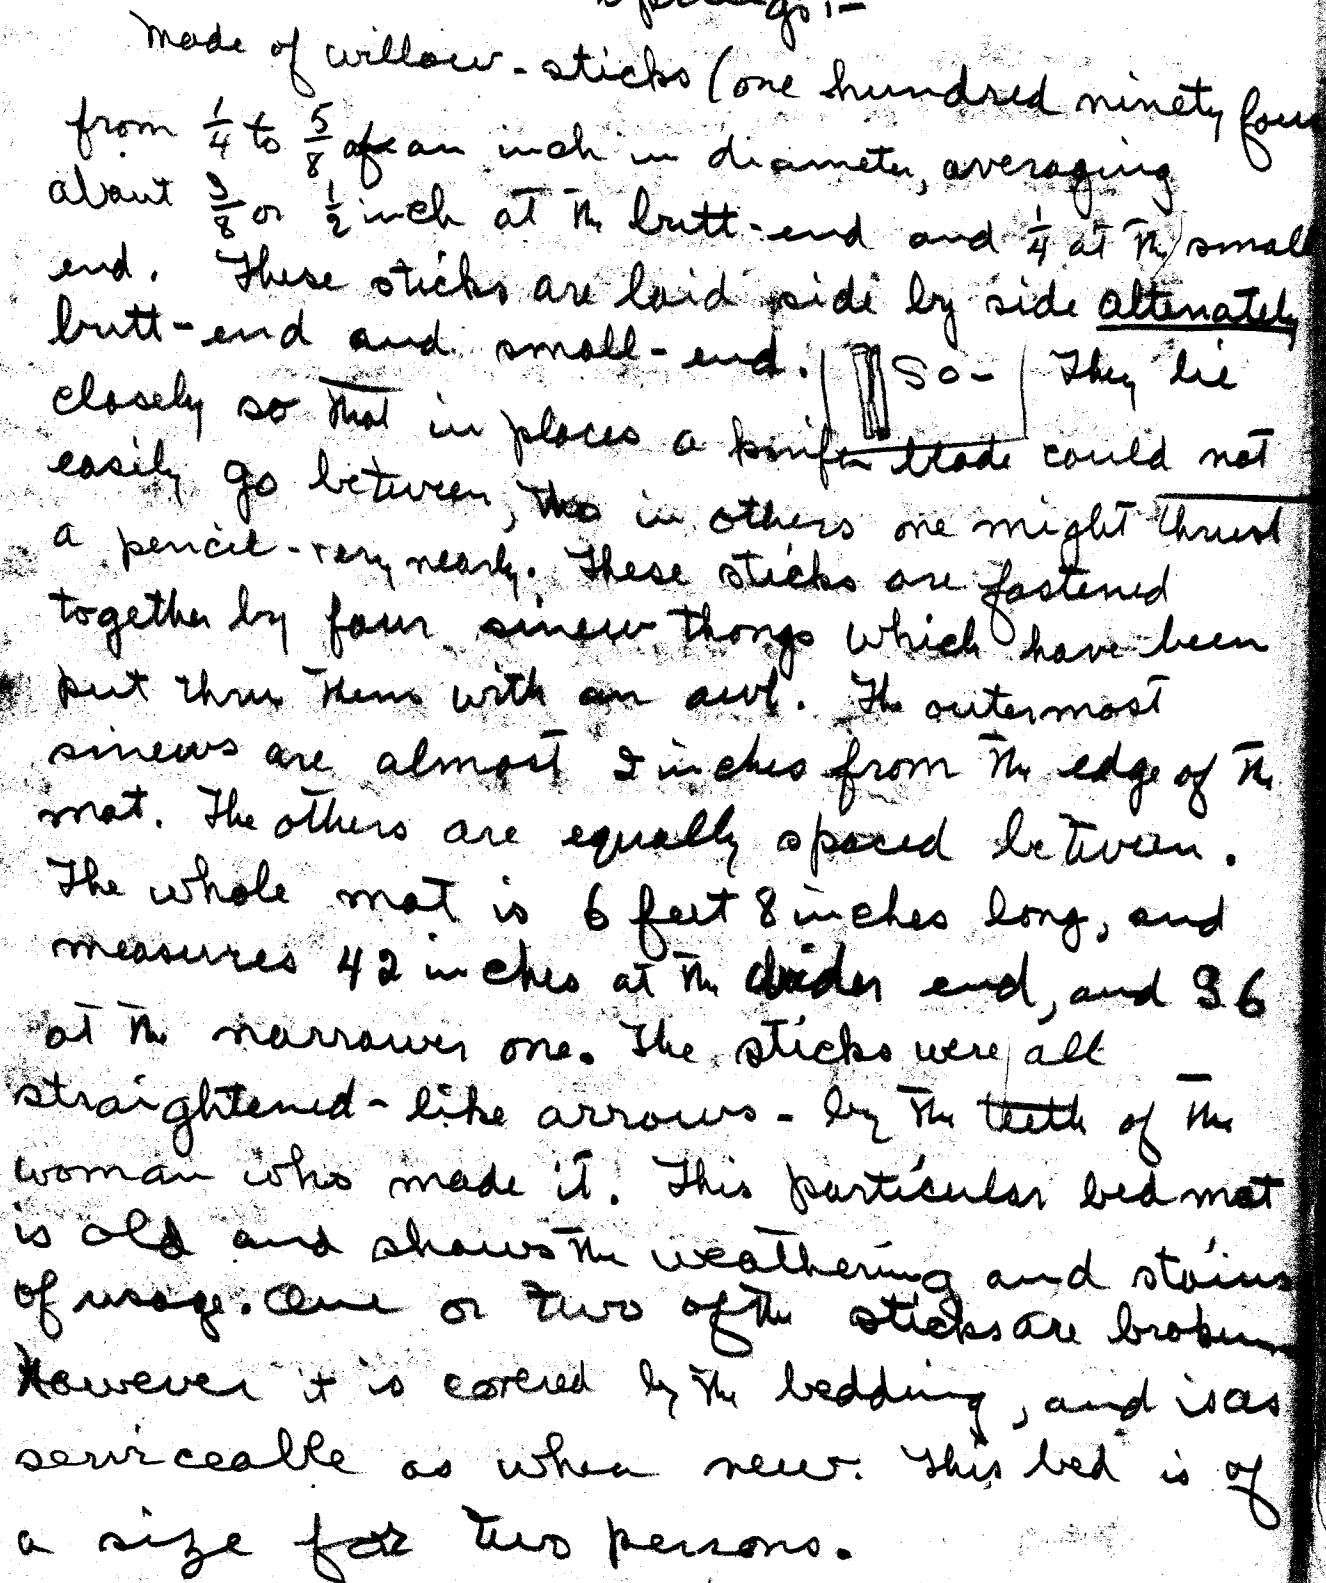 Made of willow-sticks (one hundred ninety four
from 1/4 to 5/8 of an inch in diameter, averaging
about 3/8 or 1/2 inch at the butt-end and 1/4 at the small
end. These sticks are laid side by side altenately
butt-end and small-end. | so- | They lie
closely so that in places a knife blade could not
easily go between, tho in others one might thrust
a pencil-very nearly. These sticks are fastened
together by four sinew thongs which have been
put thru them with an awl. The outermost
sinews are almost 2 inches from the edge of the
mat. The others are equally spaced between.
The whole mat is 6 feet 8 inches long, and
measures 42 inches at the wider end, and 36
at the narrower one. The sticks were all
straightened-like arrows-by the teeth of the
woman who made it. This particular bed mat
is old and shows the weathering and stains
of usage. One or two of the sticks are broken
However it is covered by the bedding, and is as
serviceable as when new. This bed is of
a size for two persons.